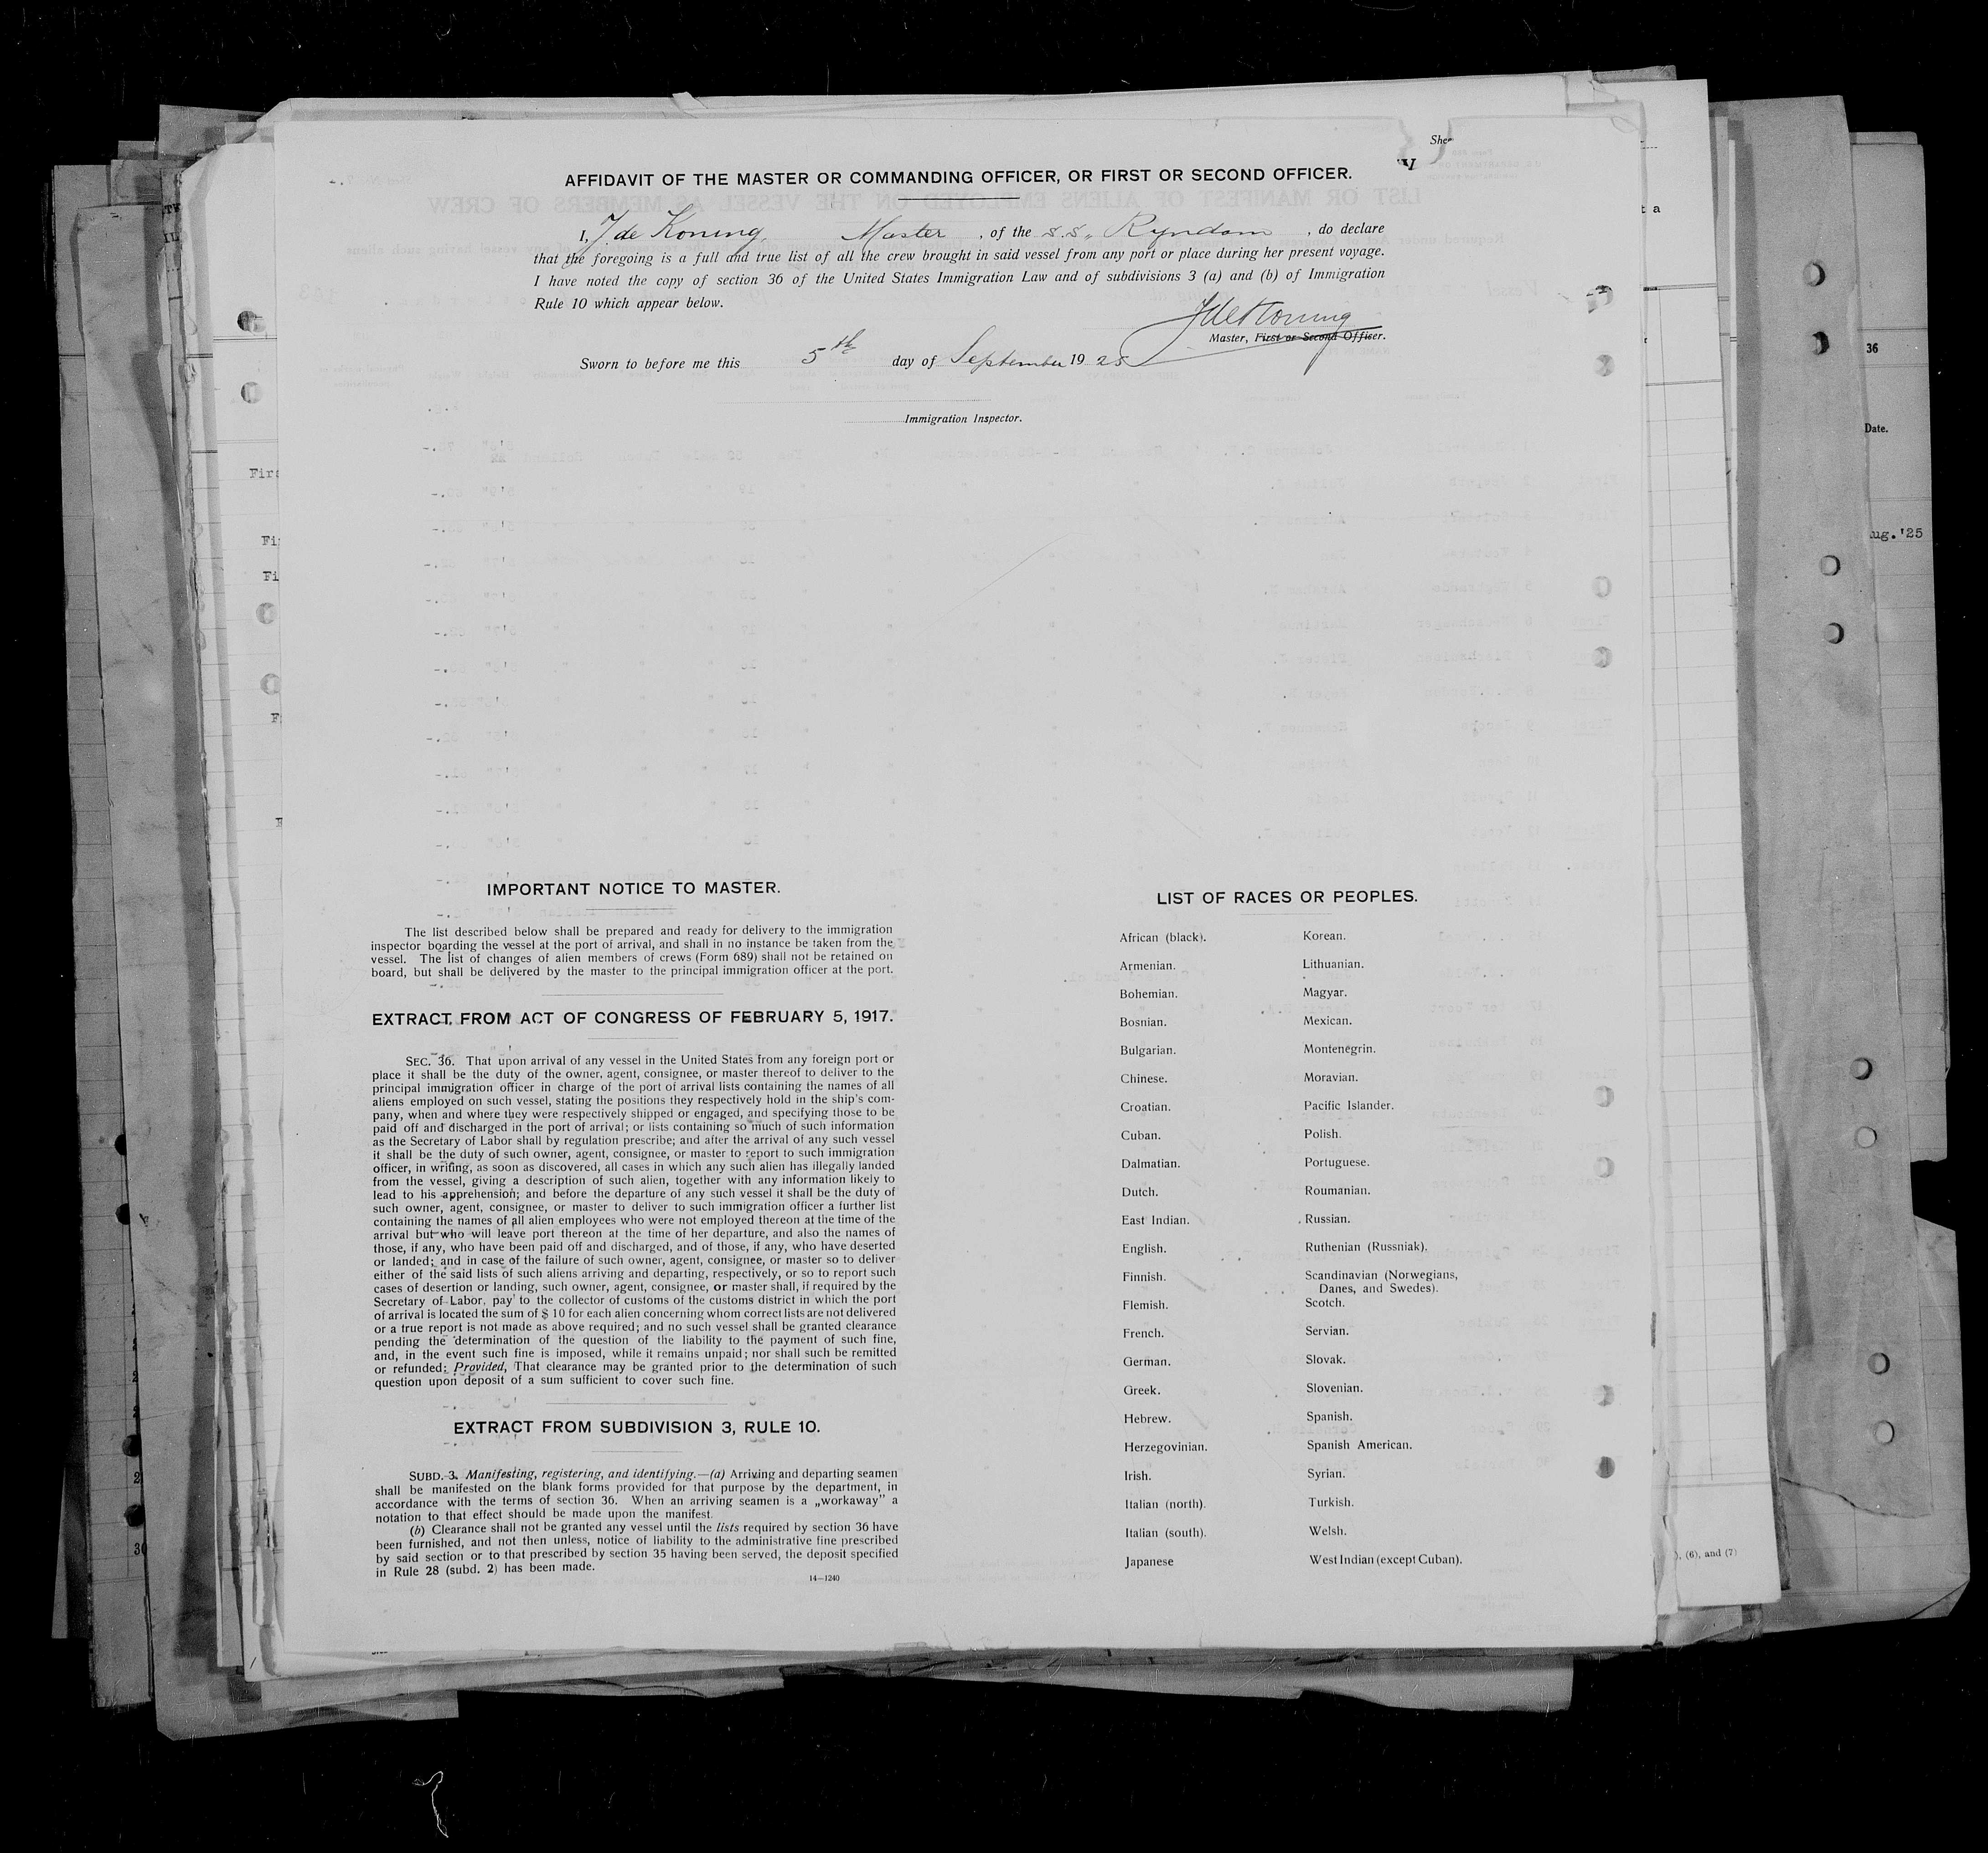 She
AFFIDAVIT OF THE MASTER OR COMMANDING OFFICER, OR FIRST OR SECOND OFFICER.
I, J de Koning, Master, of the S.S. Ryndam, do declare
that the foregoing is a full and true list of all the crew brought in said vessel from any port or place during her present voyage.
I have noted the copy of section 36 of the United States Immigration Law and of subdivisions 3 (a) and (b) of Immigration
Rule 10 which appear below.
JdeKoning
Master, First or Second Officer.
Sworn to before me this 5th day of September 1925
Immigration Inspector.
IMPORTANT NOTICE TO MASTER.
The list described below shall be prepared and ready for delivery to the immigration
inspector boarding the vessel at the port of arrival, and shall in no instance be taken from the
vessel. The list of changes of alien members of crews (Form 689) shall not be retained on
board, but shall be delivered by the master to the principal immigration officer at the port.
EXTRACT FROM ACT OF CONGRESS OF FEBRUARY 5, 1917.
SEC. 36. That upon arrival of any vessel in the United States from any foreign port or
place it shall be the duty of the owner, agent, consignee, or master thereof to deliver to the
principal immigration officer in charge of the port of arrival lists containing the names of all
aliens employed on such vessel, stating the positions they respectively hold in the ship's com-
pany, when and where they were respectively shipped or engaged, and specifying those to be
paid off and discharged in the port of arrival; or lists containing so much of such information
as the Secretary of Labor shall by regulation prescribe; and after the arrival of any such vessel
it shall be the duty of such owner, agent, consignee, or master to report to such immigration
officer, in writing, as soon as discovered, all cases in which any such alien has illegally landed
from the vessel, giving a description of such alien, together with any information likely to
lead to his apprehension; and before the departure of any such vessel it shall be the duty of
such owner, agent, consignee, or master to deliver to such immigration officer a further list
containing the names of all alien employees who were not employed thereon at the time of the
arrival but who will leave port thereon at the time of her departure, and also the names of
those, if any, who have been paid off and discharged, and of those, if any, who have deserted
or landed; and in case of the failure of such owner, agent, consignee, or master so to deliver
either of the said lists of such aliens arriving and departing, respectively, or so to report such
cases of desertion or landing, such owner, agent, consignee, or master shall, if required by the
Secretary of Labor, pay to the collector of customs of the customs district in which the port
of arrival is located the sum of $ 10 for each alien concerning whom correct lists are not delivered
or a true report is not made as above required; and no such vessel shall be granted clearance
pending the determination of the question of the liability to the payment of such fine,
and, in the event such fine is imposed, while it remains unpaid; nor shall such be remitted
or refunded; Provided, That clearance may be granted prior to the determination of such
question upon deposit of a sum sufficient to cover such fine.
EXTRACT FROM SUBDIVISION 3, RULE 10.
SUBD. 3. Manifesting, registering, and identifying.—(a) Arriving and departing seamen
shall be manifested on the blank forms provided for that purpose by the department, in
accordance with the terms of section 36. When an arriving seamen is a „workaway” a
notation to that effect should be made upon the manifest.
(b) Clearance shall not be granted any vessel until the lists required by section 36 have
been furnished, and not then unless, notice of liability to the administrative fine prescribed
by said section or to that prescribed by section 35 having been served, the deposit specified
in Rule 28 (subd. 2) has been made.
14—1240
LIST OF RACES OR PEOPLES.
African (black).
Armenian.
Bohemian.
Bosnian.
Bulgarian.
Chinese.
Croatian.
Cuban.
Dalmatian.
Dutch.
East Indian.
English.
Finnish.
Flemish.
French.
German.
Greek.
Hebrew.
Herzegovinian.
Irish.
Italian (north).
Italian (south).
Japanese
Korean.
Lithuanian.
Magyar.
Mexican.
Montenegrin.
Moravian.
Pacific Islander.
Polish.
Portuguese.
Roumanian.
Russian.
Ruthenian (Russniak).
Scandinavian (Norwegians,
Danes, and Swedes).
Scotch.
Servian.
Slovak.
Slovenian.
Spanish.
Spanish American.
Syrian.
Turkish.
Welsh.
West Indian (except Cuban).
36
Date.
ug.'25
), (6), and (7)